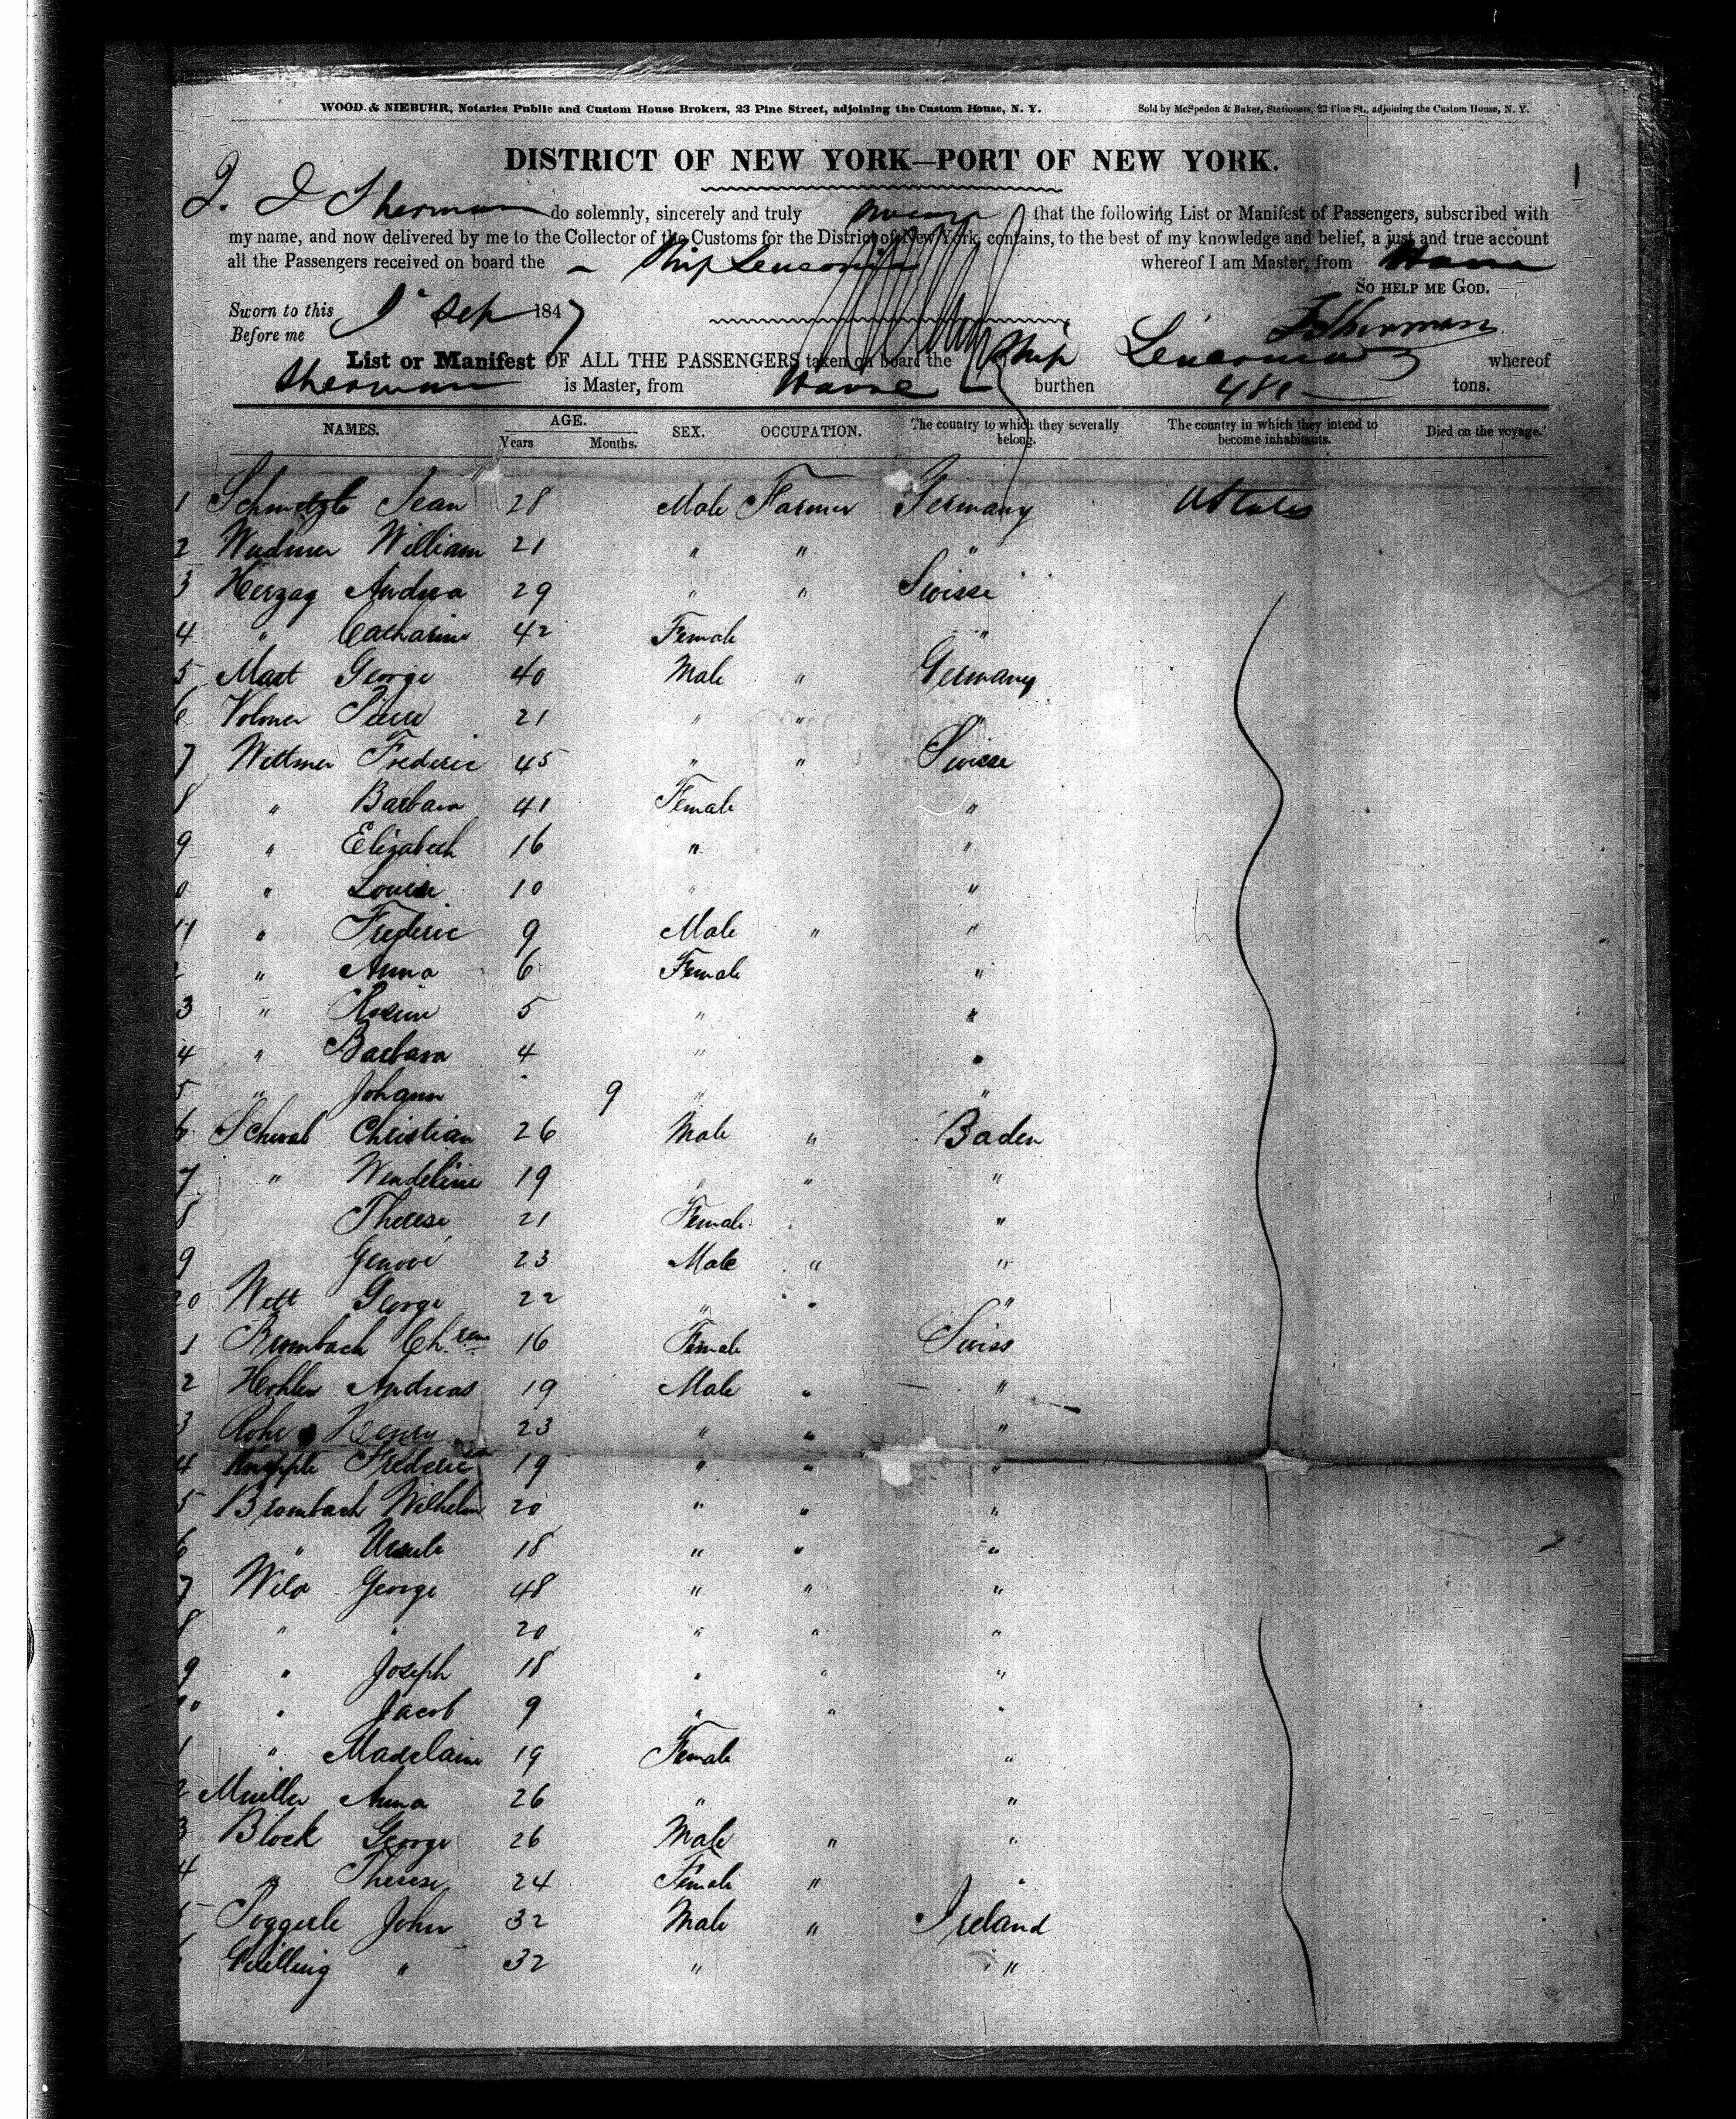 WOOD & NIEBUHR, Notaries Public and Custom House Brokers, 23 Pine Street, adjoining the Custom House, N. Y. Sold by McSpedon & Baker, Stationers, 23 Pine St., adjoining the Custom House, N. Y.
DISTRICT OF NEW YORK—PORT OF NEW YORK.
I. J Sherman do solemnly, sincerely and truly swear that the following List or Manifest of Passengers, subscribed with
my name, and now delivered by me to the Collector of the Customs for the District of New York, contains, to the best of my knowledge and belief, a just and true account
all the Passengers received on board the Ship Leuconia whereof I am Master, from Havre
SO HELP ME GOD.
Sworn to this 1st Sep 1847
Before me
J Sherman
List or Manifest OF ALL THE PASSENGERS taken on board the Ship Leuconia whereof
Sherman is Master, from Havre burthen 480 tons.
NAMES. AGE. Years Months. SEX. OCCUPATION. The country to which they severally belong. The country in which they intend to become inhabitants. Died on the voyage.
1 Jean 28 Male Farmer Germany U States
2 William 21 " " "
3 Herzag Andrea 29 " " Swisse
4 " Catharine 42 Female "
5 Mast George 40 Male " Germany
6 Volmer Pierre 21 " " "
7 Wittmer Frederic 45 " " Swisse
8 " Barbara 41 Female "
9 " Elizabeth 16 " "
0 " Louise 10 " "
11 " Frederic 9 Male " "
2 " Anna 6 Female "
3 " Rosine 5 " "
4 " Barbara 4 " "
5 " Johann 9 " "
6 Schwab Christian 26 Male " Baden
7 " Wendeline 19 " " "
8 Therese 21 Female "
9 Genove 23 Male " "
20 Wett George 22 " " "
1 Brombach 16 Female Swiss
2 Hohler Andreas 19 Male " "
3 Rohr Henry 23 " " "
4 Frederic 19 " " "
5 Brombach Wilhelm 20 " " "
6 " Ursule 18 " " "
7 Wild George 48 " " "
8 " " 20 " " "
9 " Joseph 18 " " "
" Jacob 9 " " "
1 " Madelaine 19 Female "
2 Mueller Anna 26 " "
3 Block George 26 Male " "
4 " Therese 24 Female " "
5 Poggerle John 32 Male " Ireland
Gwilling " 32 " "